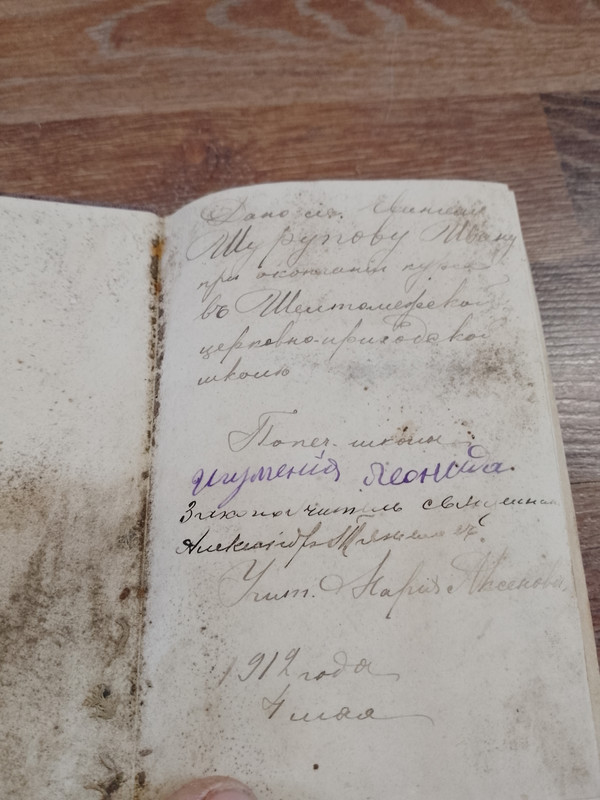 Дано сіе
Шурупову Ивану
при окончаніи курса
въ Шелтомежской
церковно-приходской
школѣ
Попеч. школы
игуменія Леонида.
Законоучитель священник
Александръ
Учит. Марія Аксенова
1912 года
4 мая